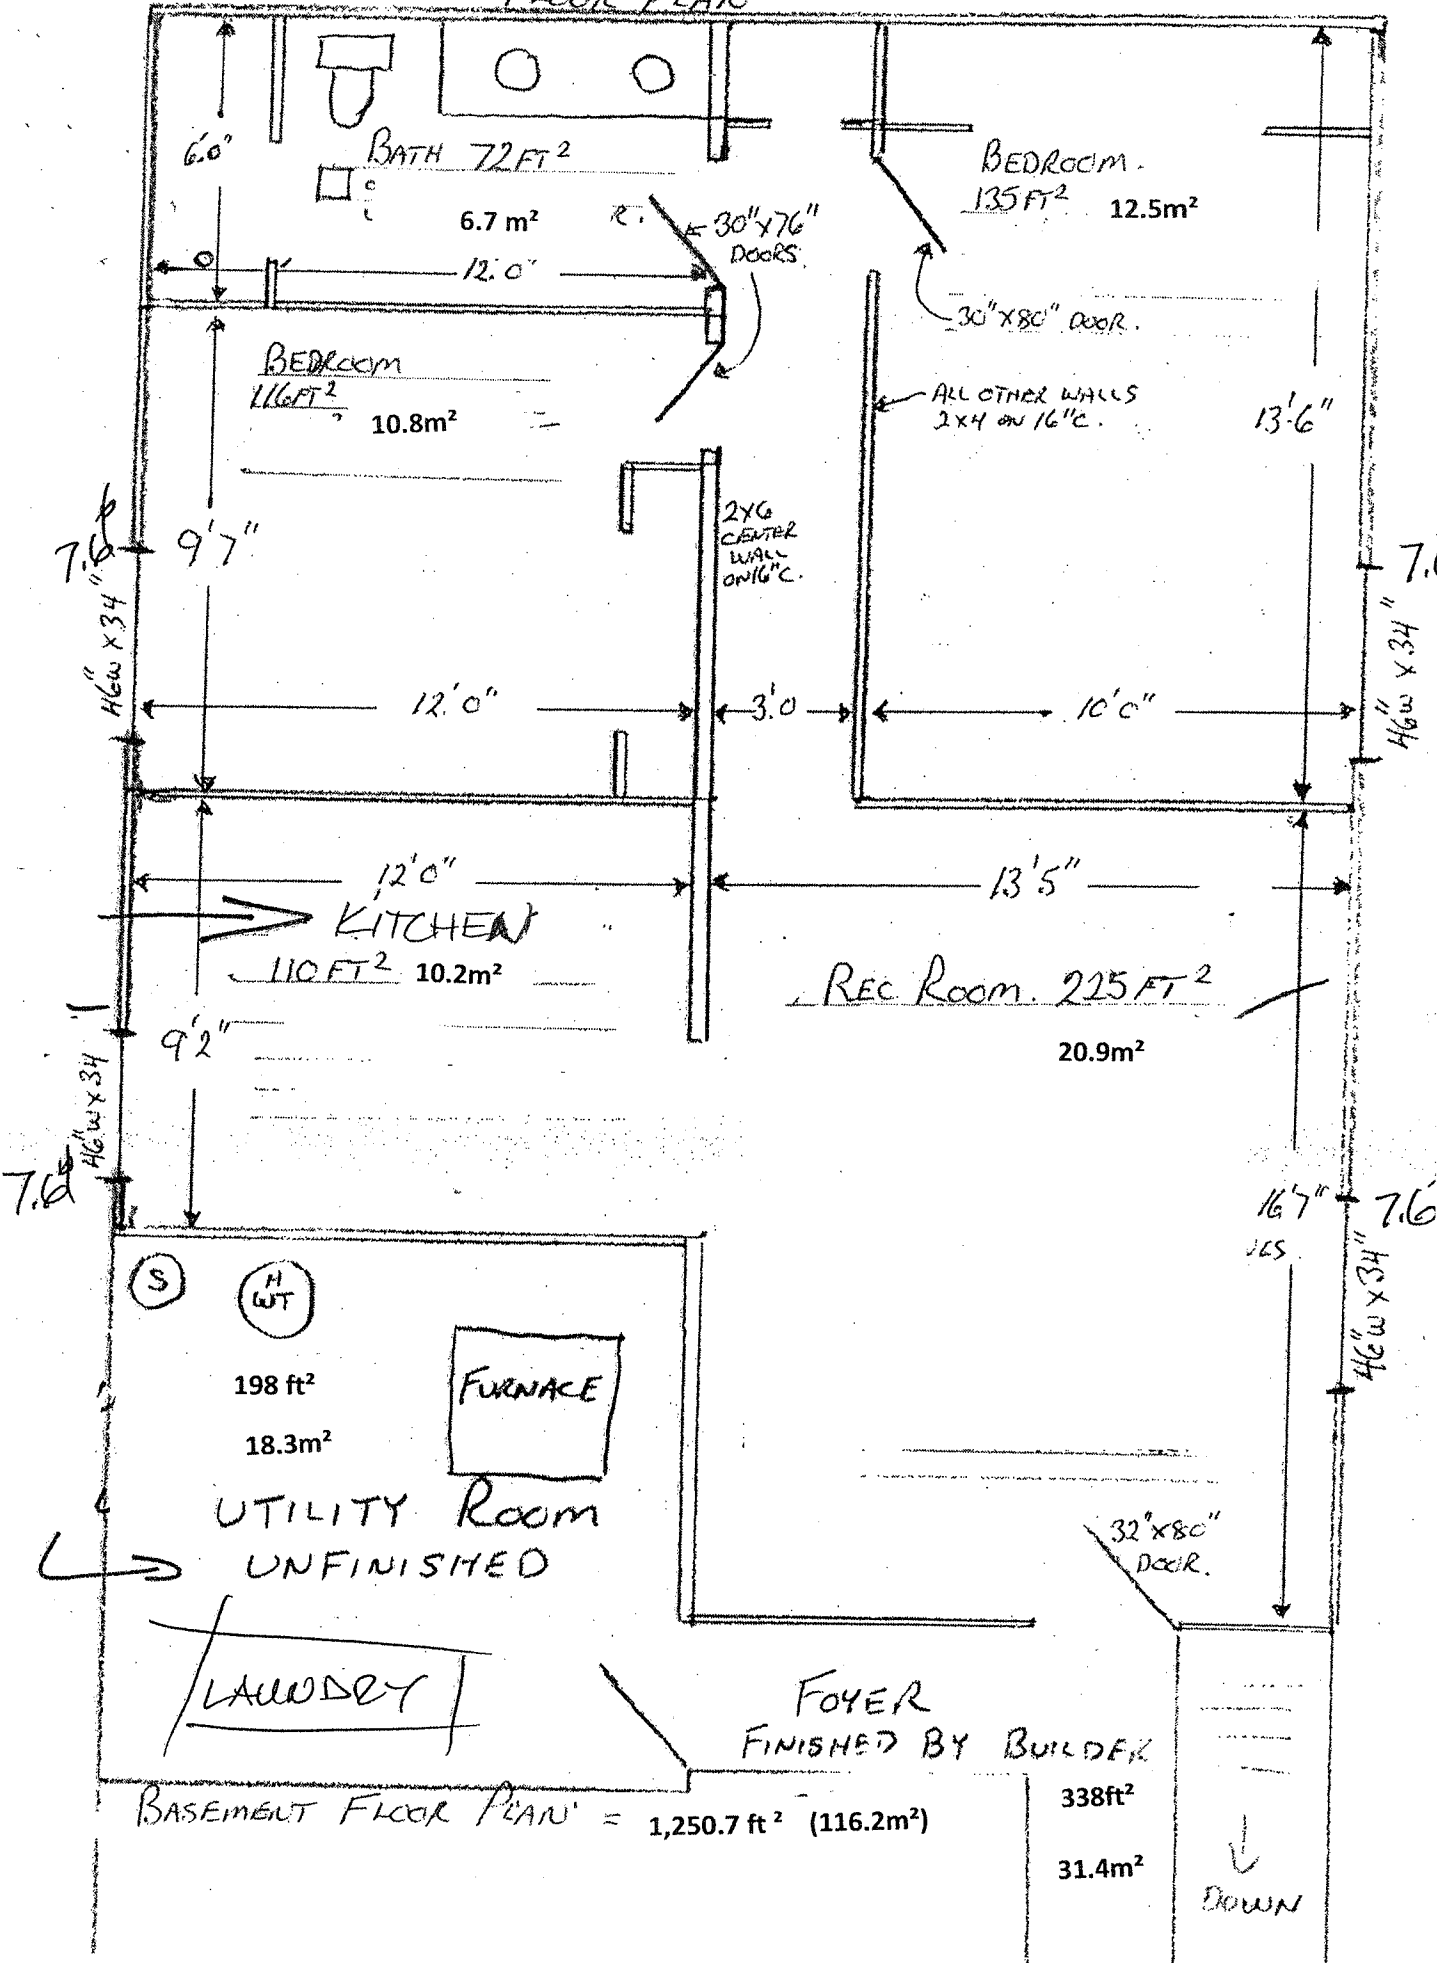 FLOOR PLAN
6'.0"
BATH 72 FT²
6.7 m²
R.
30"x76"
DOORS.
BEDROOM.
135 FT² 12.5m²
12'.0"
30"x80" DOOR.
BEDROOM
116 FT²
10.8m²
ALL OTHER WALLS
2x4 ON 16"C.
13'-6"
2x6
CENTER
WALL
ON 16"C.
7.6
9'7"
46"w x 34"
46"w x 34"
12'.0"
3'.0
10'0"
12'0"
13'5"
KITCHEN
110 FT² 10.2m²
REC ROOM. 225 FT²
20.9m²
9'2"
46"w x 34
7.6
16'7"
7.6
46"w x 34"
S
H
WT
198 ft²
18.3m²
FURNACE
UTILITY ROOM
UNFINISHED
32"x80"
DOOR.
LAUNDRY
FOYER
FINISHED BY BUILDER
338ft²
31.4m²
BASEMENT FLOOR PLAN = 1,250.7 ft² (116.2m²)
DOWN